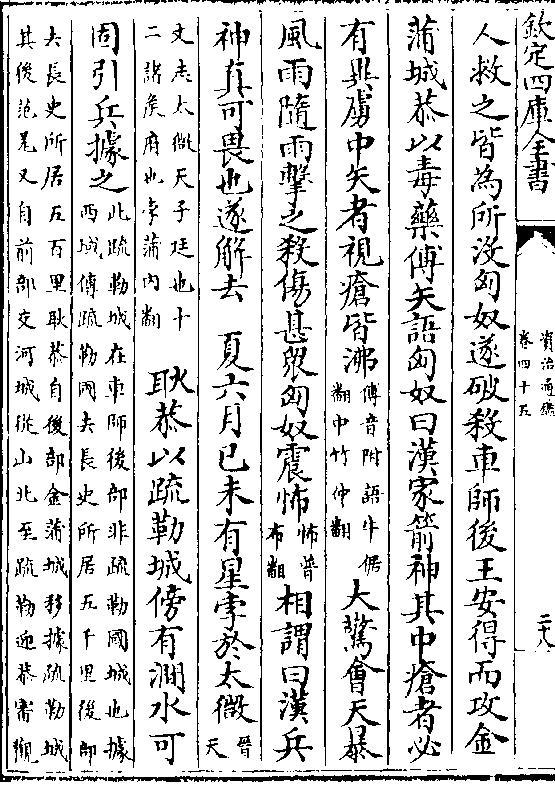 欽定四庫全書
資治通鑑
卷四十五
二十八
人救之皆為所沒匈奴遂破殺車師後王安得而攻金
蒲城恭以毒藥傅矢語匈奴曰漢家箭神其中瘡者必
有異虜中矢者視瘡皆沸
傅音附語牛倨
翻中竹仲翻
大驚會天暴
風雨隨雨擊之殺傷甚衆匈奴震怖
怖普
布翻
相謂曰漢兵
神真可畏也遂解去 夏六月已未有星孛於太微
晉
天
文志太微天子廷也十
二諸侯府也孛蒲內翻
耿恭以疏勒城傍有澗水可
固引兵據之
此疏勒城在車師後部非疏勒國城也據
西域傳疏勒國去長史所居五千里後部
去長史所居五百里耿恭自後部金蒲城移據疏勒城
其後范羌又自前部交河城從山北至疏勒迎恭審觀